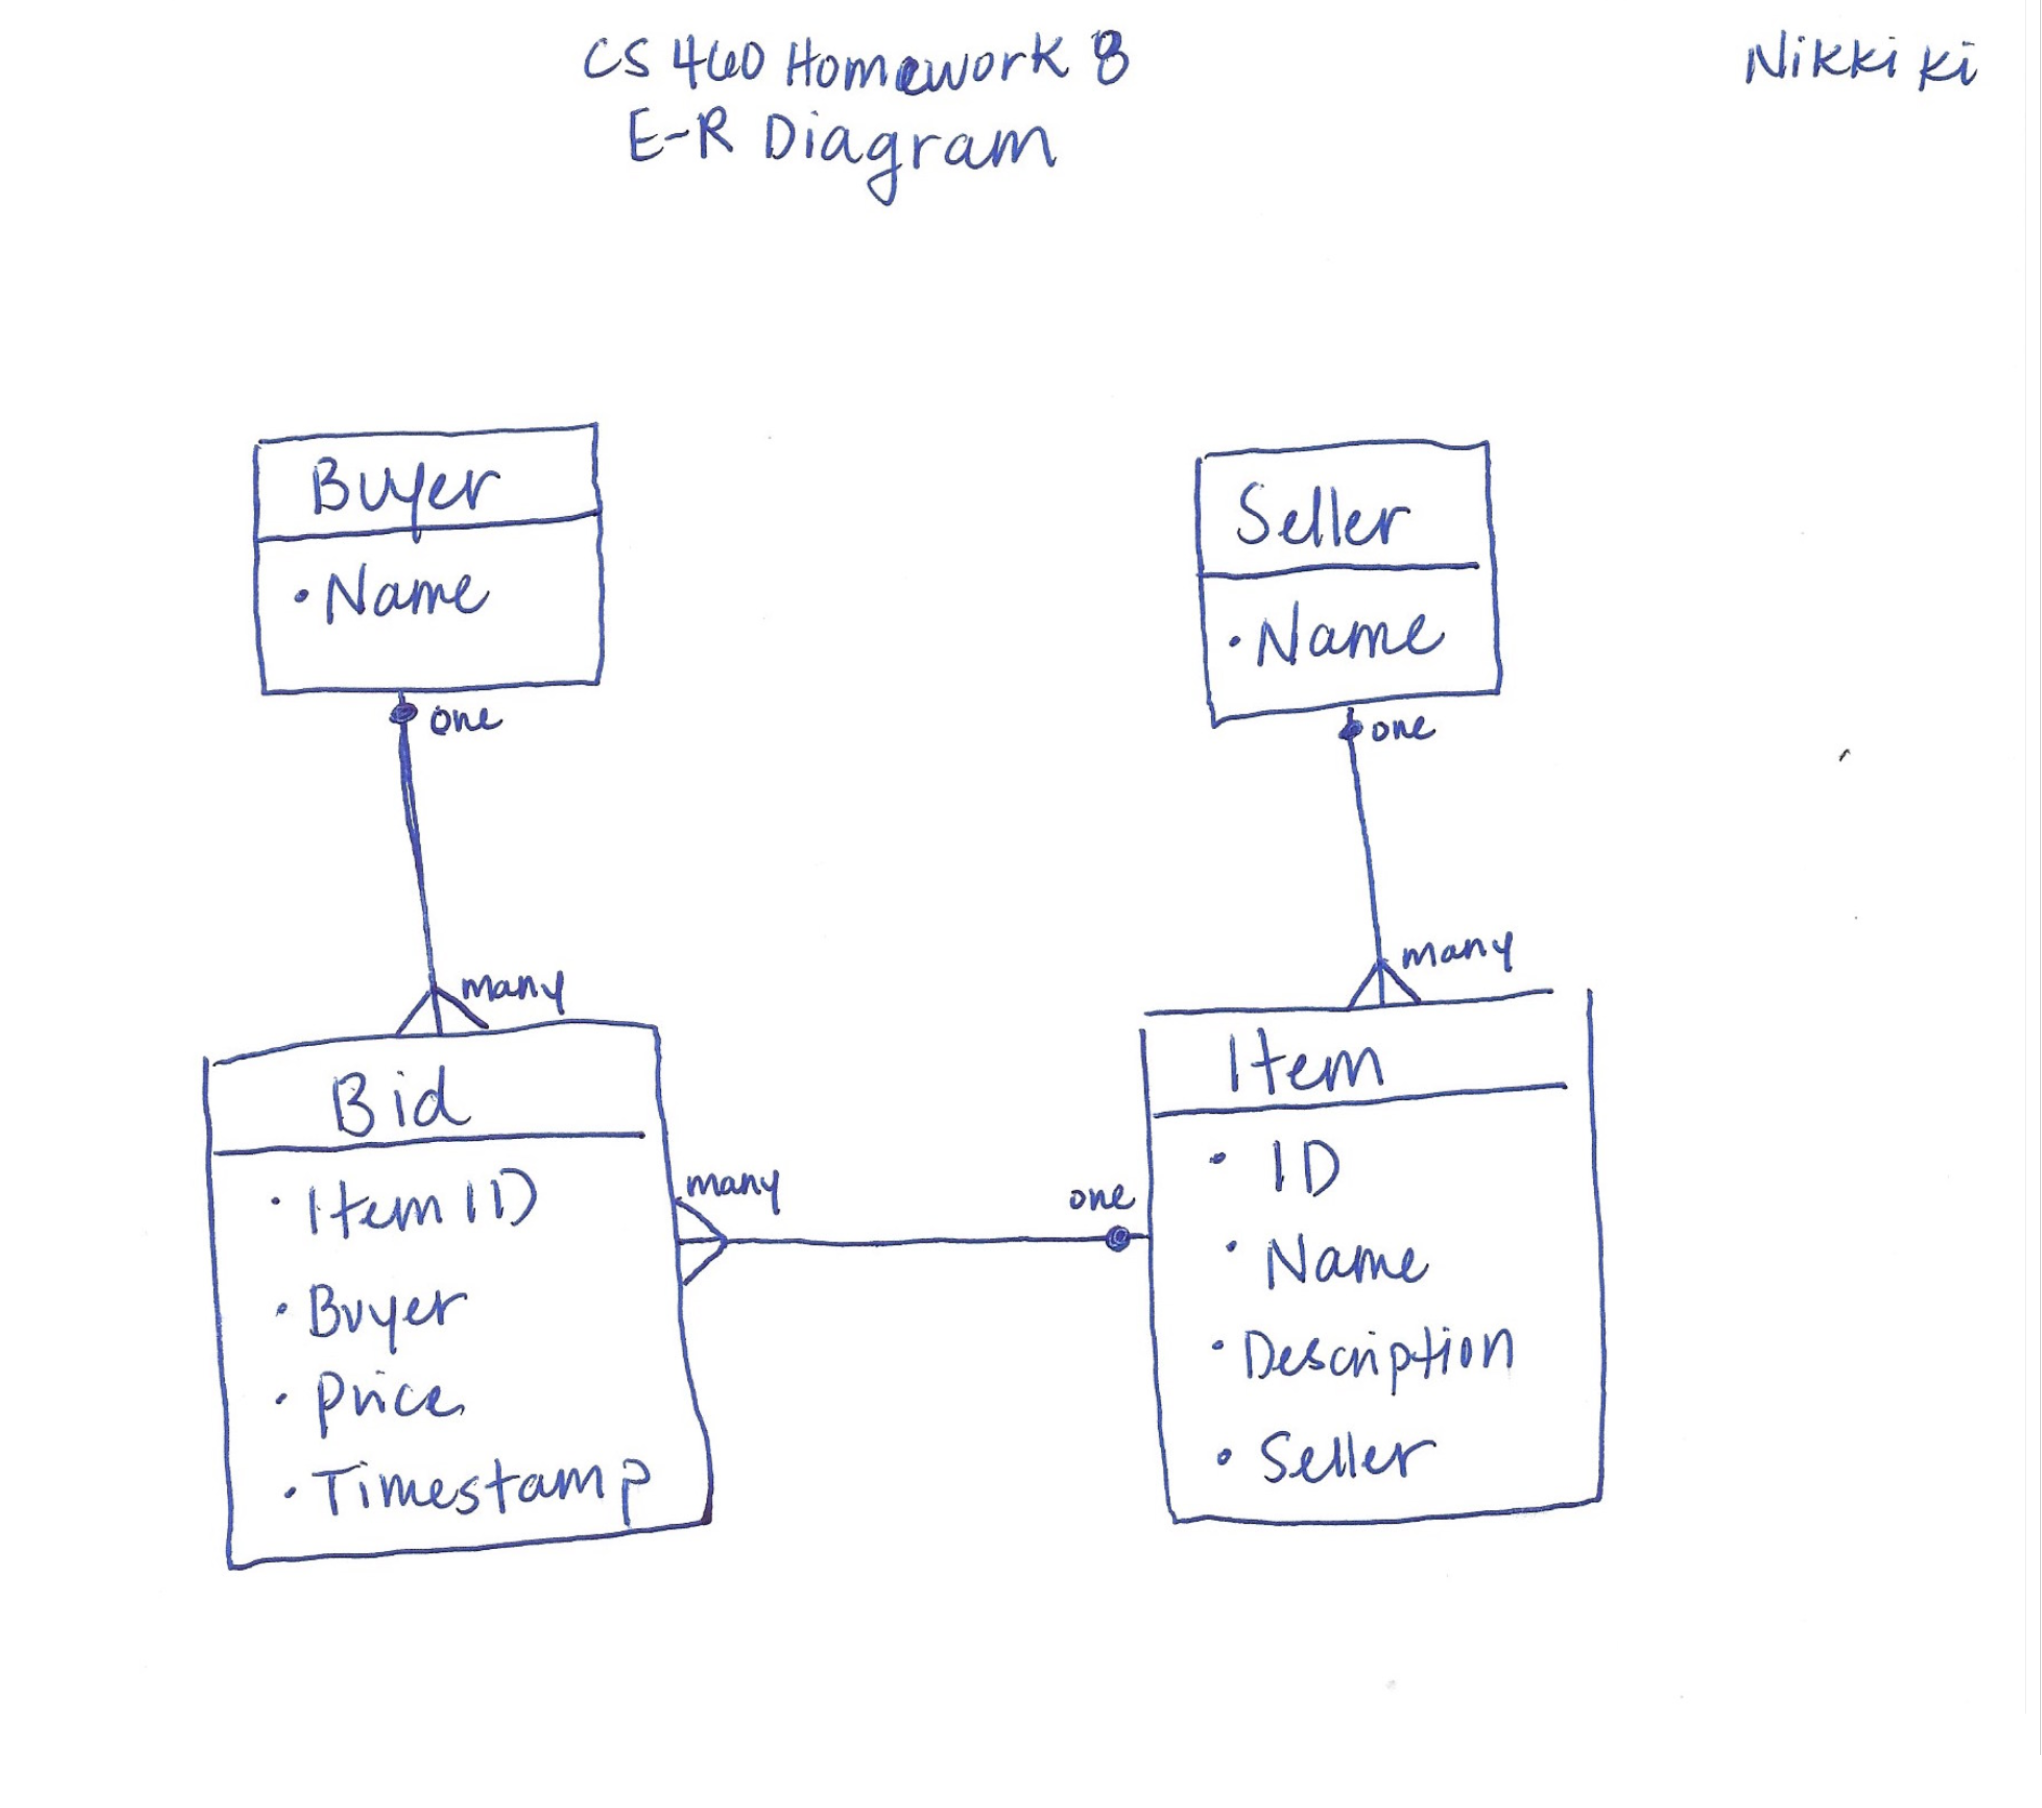 CS 460 Homework 8
Nikki Ki
E-R Diagram
Buyer
• Name
one
many
Seller
• Name
one
many
Bid
• Item ID
• Buyer
• Price
• Timestamp
many
one
Item
• ID
• Name
• Description
• Seller